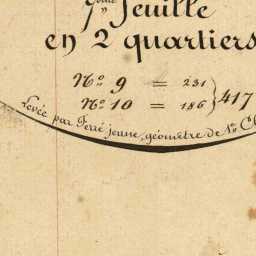 Feuille
en 2 quartiers
N.º 9 = 231
N.º 10 = 186 } 417
Levée par Ferré jeune, géomètre de 1.re Cl